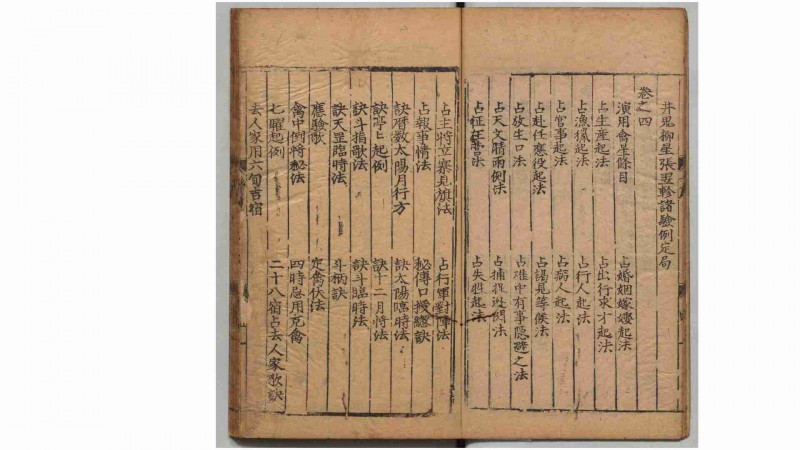 井鬼柳星張翌軫諸驗例定局
卷之四
演用禽星條目 占婚姻嫁娶起法
占生產起法 占出行求才起法
占漁獵起法 占行人起法
占官事起法 占病人起法
占赴任應役起法 占謁見等候法
占放生口法 占難中有事隱避之法
占天文晴雨例法 占捕捉逃閃法
占征在營法 占失脫起法
占主將立寨見旗法 占行軍對陣法
占報事情法 秘傳口授總訣
訣曆數太陽月行方 訣太陽臨時法
訣亭亭起例 訣十二月將法
訣斗指歌法 訣斗臨時法
訣天罡臨時法 斗柄訣
應驗歌 定禽伏法
禽中倒將秘法 四時忌用死禽
七曜起例
去人家用六旬吉宿 二十八宿占去人家歌訣